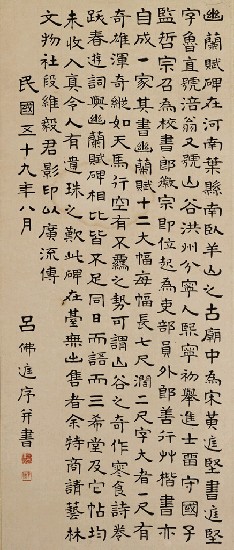 幽蘭賦碑在河南葉縣南臥羊山之古廟中為宋黃庭堅書庭堅
字魯直號涪翁又號山谷洪州分寧人熙寧初舉進士留守國子
監哲宗召為校書郎徽宗即位起為吏部員外郎善行艸楷書亦
自成一家其書幽蘭賦十二大幅每幅長七尺濶二尺字大者一尺有
奇雄渾奇縱如天馬行空有不羈之勢可謂山谷之奇作寒食詩拳
跃春遊詞與幽蘭賦碑相比皆不足同日而語而三希堂及它帖均
未收入真令人有遺珠之歎此碑在臺無出售者余特商請藝林
文物社段維毅君影印以廣流傳
民國五十九年八月
呂佛庭序并書